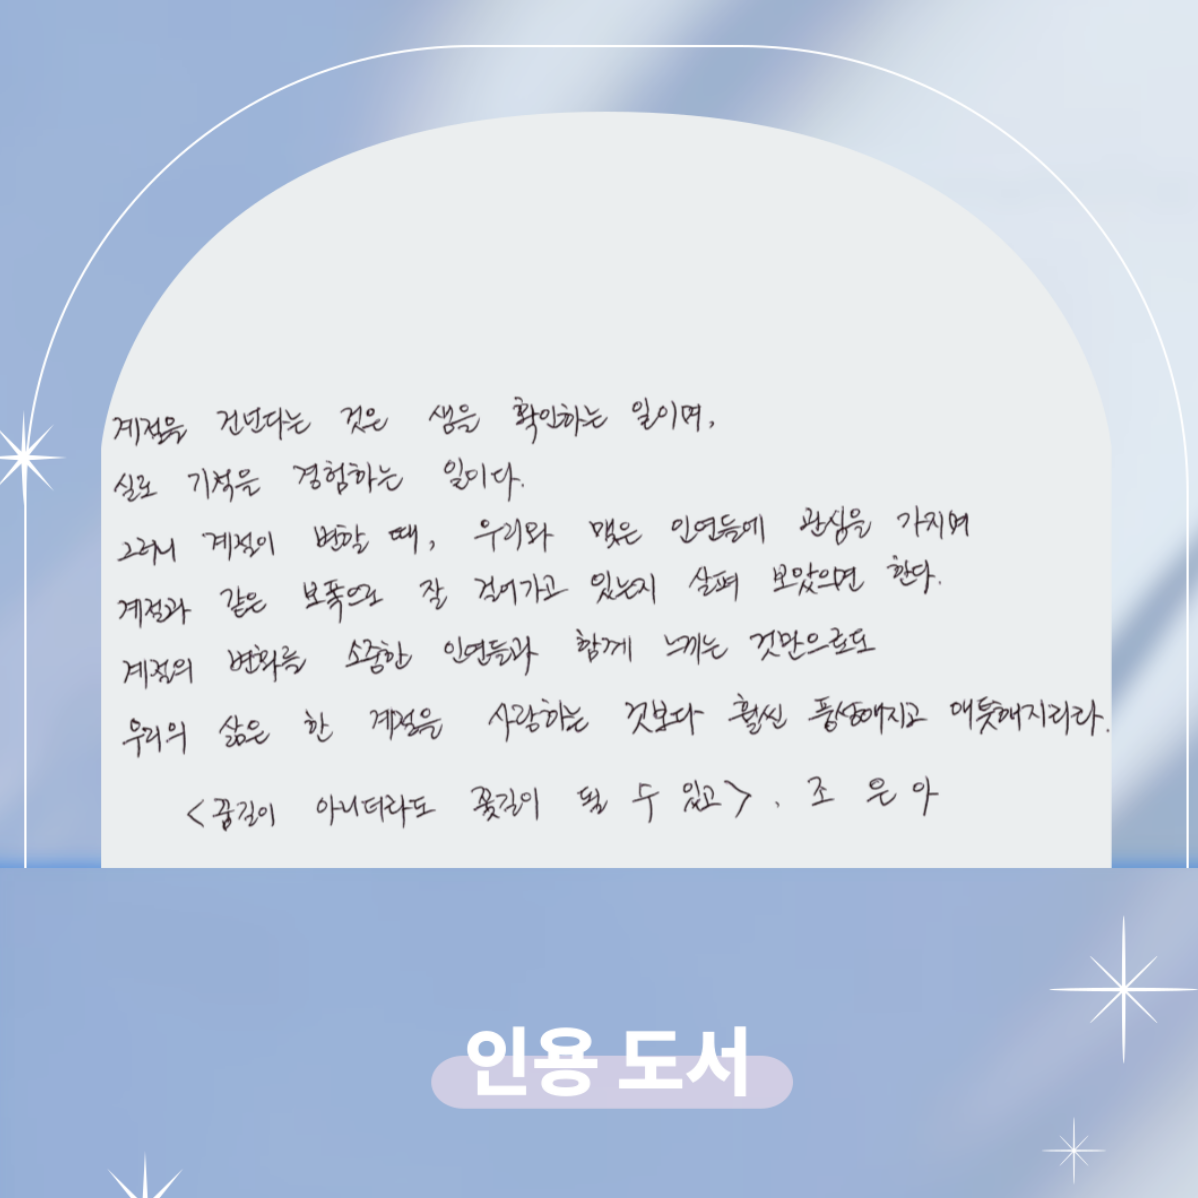 계절을 건넌다는 것은 생을 확인하는 일이며,
실로 기적을 경험하는 일이다.
그러니 계절이 변할 때, 우리와 맺은 인연들에 관심을 가지며
계절과 같은 보폭으로 잘 걸어가고 있는지 살펴 보았으면 한다.
계절의 변화를 소중한 인연들과 함께 느끼는 것만으로도
우리의 삶은 한 계절을 사랑하는 것보다 훨씬 풍성해지고 애틋해지리라.
<꿈길이 아니더라도 꽃길이 될 수 있고>, 조은아
인용 도서